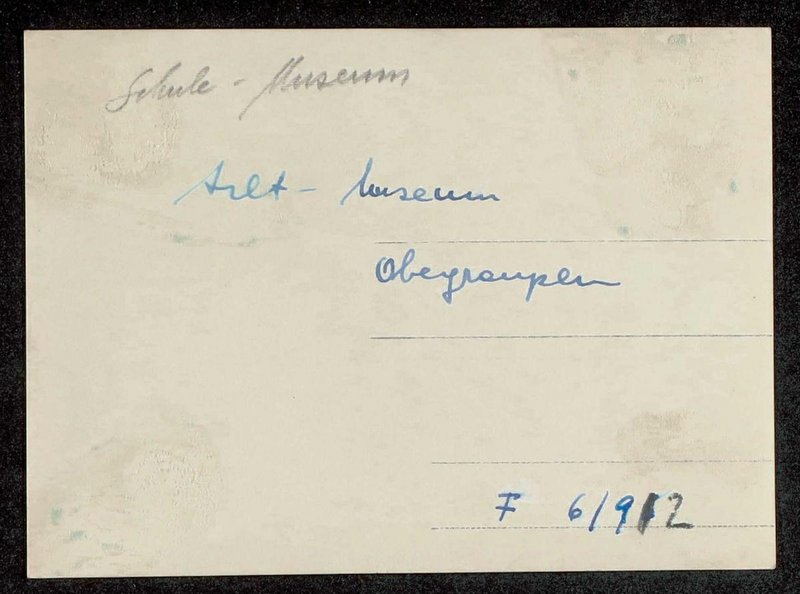 Schule - Museum
Arlt - Museum
Obergraupen
F 6/9/2